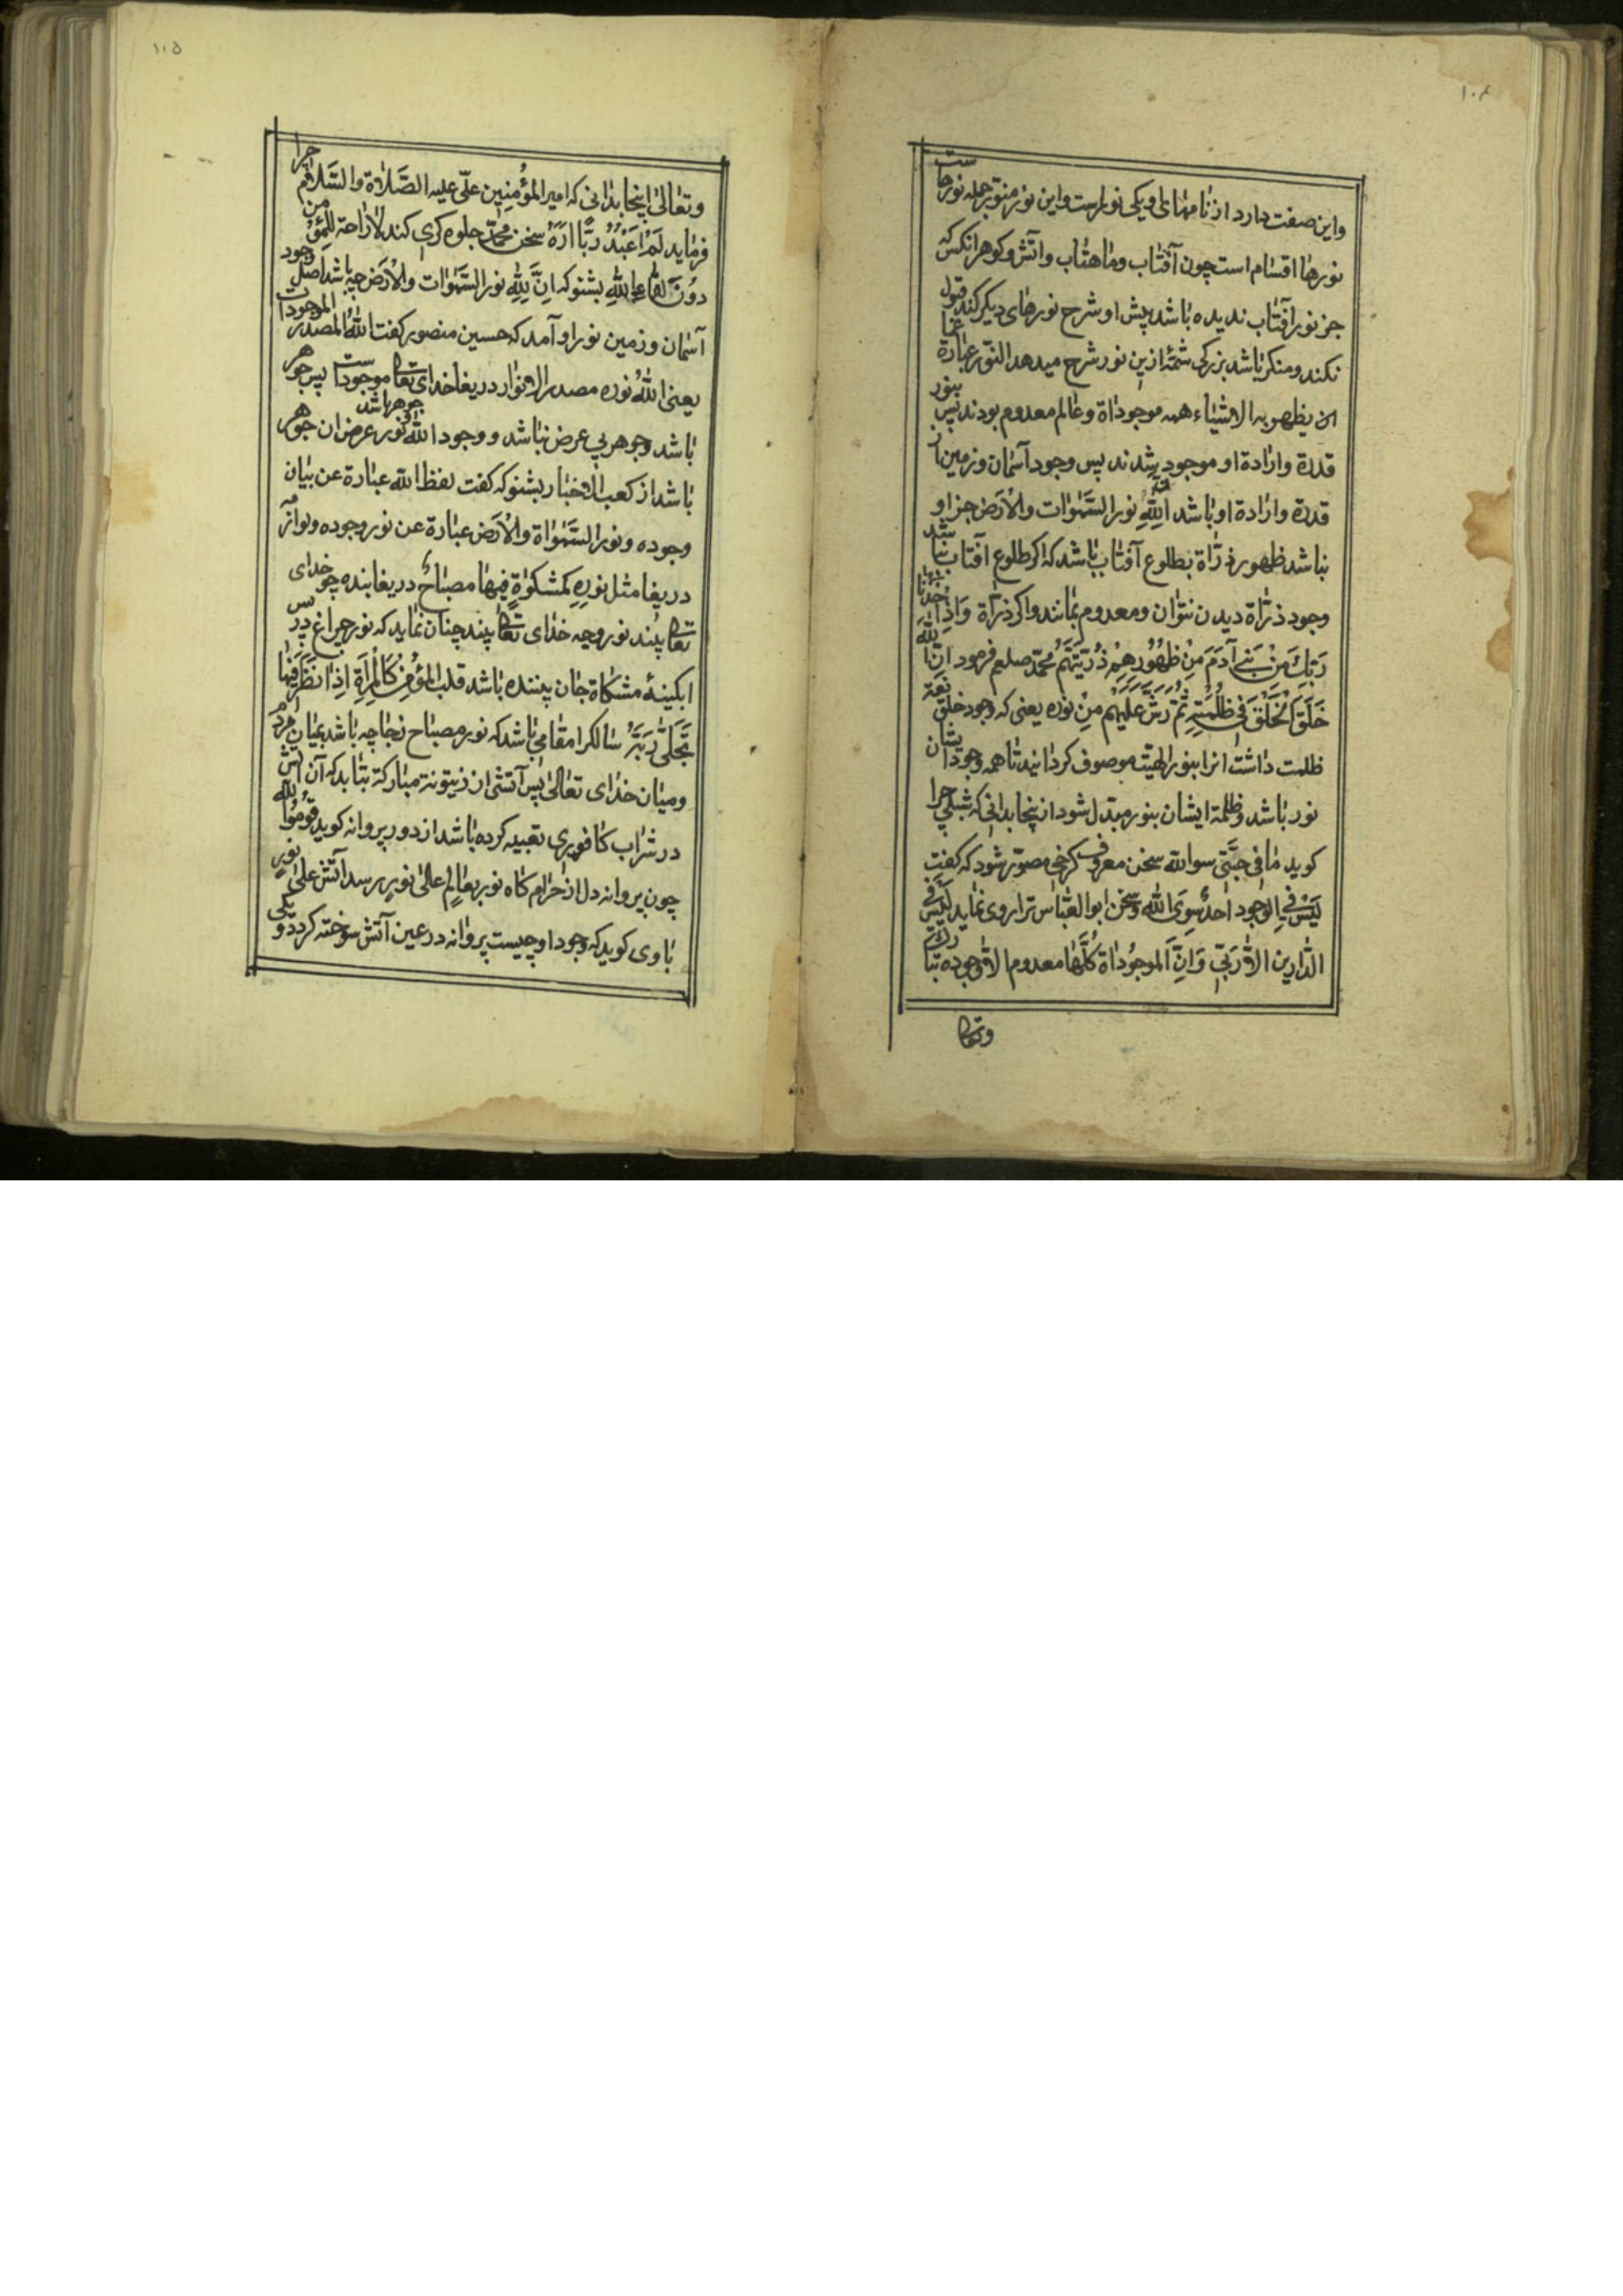 ۱۰۴
واین صفت دارد از نامهای او یکی نورست واین نور منوّر جمله نورهاست
نورها اقسام است چون آفتاب وماهتاب وآتش وکوهر انکس که
جز نور آفتاب ندیده باشد پیش او شرح نورهای دیکر کند قبول
نکند ومنکر باشد بزرکی شمّهٔ ازین نور شرح میدهد النّور عبارة عمّا
یظهر به الاشیاء همه موجوداة وعالم معدوم بودند پس بنور
قدرة وارادة او موجود شدند پس وجود آسمان وزمین از
قدرة وارادة او باشد اللّه نور السّمٰوات والْارَض جز او
نباشد ظهور ذرّاة بطلوع آفتاب باشد که اکر طلوع آفتاب نباشد
وجود ذرّاة دیدن نتوان ومعدوم نمانند واکر ذرّاة وَاِذْ اَخَذَ
رَبّكَ مِنْ بَنے آدَمَ مِنْ ظهُوُرِهِمْ ذُرّیَّتَهُمْ محمّد صلعم فرمود انّ اللّٰهَ
خَلَقَ الْخَلْقَ فی ظُلْمَتِهِ ثُمَّ رَشَّ عَلَیْهِم مِنْ نوره یعنی که وجود خلق
ظلمت داشت انرا بنور الهیّت موصوف کردانیند تا همه وجودشان
نور باشد وظلمة ایشان بنور مبتدل شود ازینجا بدانی که شبلی چرا
کوید مٰا فی جبّتی سوالله سخن معروف کرخی مصوّر شود که کفت
لَیْسَ فے الْوجود احدٌ سِوَی اللّٰه وسخن ابو العبّاس ترا روی نماید لَیْسَ فی
الدّارین الاّ ربّی وَانّ الموجُوداة کُلّهٰا معدوم الاّ وجوده تبارك
وتعا
۱۰۵
وتعٰالیٰ اینجا بدانی که امیر المؤُمنِین علّی علیه الصَّلاٰة والسَّلام چرا
فرماید لَمْ اَعْبُدْ ربًّا ارَهُ سخن محمّد جلوه کری کند لاٰ راحة للِمؤُمن
دوُنَ لقاء اللّٰه بشنو که انَّ للّٰه نور السَّمٰوات والْارَض چه باشد اصل وجود
آسمان وزمین نور او آمد که حسین منصور کفت اللّٰه المصدر الموجودات
یعنی اللّٰه نوره مصدر الانوار دریغا خدای تعا موجود است پس جوهر
باشد وجوهر بی عرض نباشد ووجود اللّٰه جوهر باشد ونور عرض ان جوهر
باشد از کعب الاخبار بشنو که کفت لفظ الله عبارة عن بیان
وجوده ونور السَّمٰواة والْارَض عبارة عن نور وجوده
دریغا مثل نوره کَمشکوٰةٍ فِیهٰا مصبٰاحٌ دریغا بنده چو خدای
تعا بیند نور وجه خدای تعا بیند چنان نماید که نور چراغ در پس
ابکینهٔ مشکاة جان بیننده باشد قلب المؤُمن کَالْمِرآَةِ اِذٰا نَظَرَ فیهٰا
تَجَلّیٰ رَبّهُ سٰالک را مقامی باشد که نور مصباح زجاجه باشد بمیٰان مردم
ومیٰان خدای تعٰالیٰ پس آتشی از زیتونة مبٰارکة بتابد که آن آتش
در شراب کٰافوری تعبیه کرده باشد از دور پروانه کوید قوُموُا للّٰه
چون پروانه دل از حرام کاه نور بعالمٍ عالی نورٍ رسد آتش علیٰ نورٍ
باوی کوید که وجود او چیست پروانه در عین آتش سوخته کردد ویکی